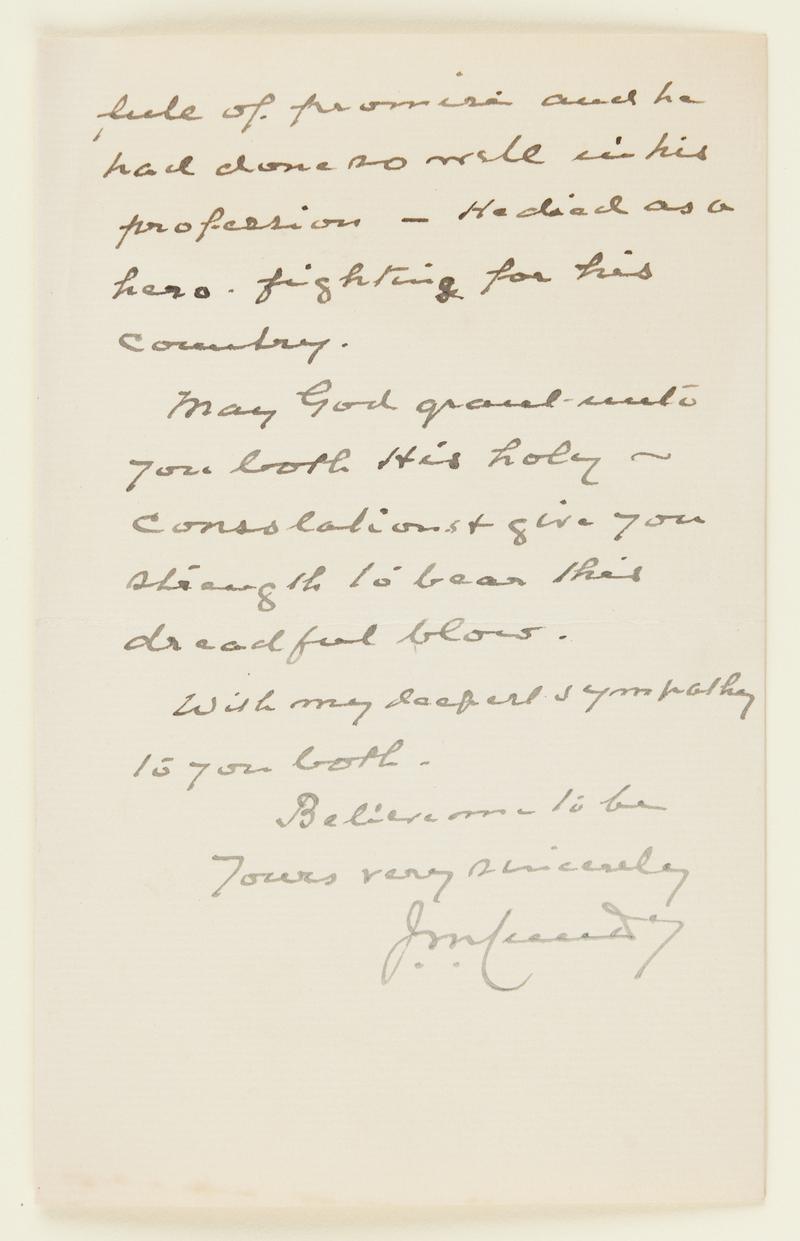 full of promise and he
had done so well in his
profession — He died as a
hero. fighting for his
Country.
May God grant unto
you both His holy ~
Consolations & give you
strength to bear this
dreadful blow.
With my deepest sympathy
to you both.
Believe me to be
Yours very sincerely
J. M.